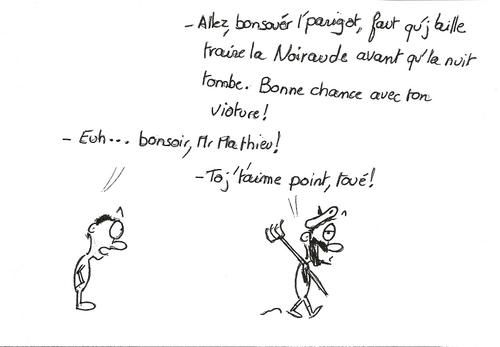 - Allez, bonsouér l'parigot, faut qu'j'aille
traire la Noiraude avant qu'la nuit
tombe. Bonne chance avec ton
vioture!
- Euh... bonsoir, Mr Mathieu!
- Toj't'aime point, toué!